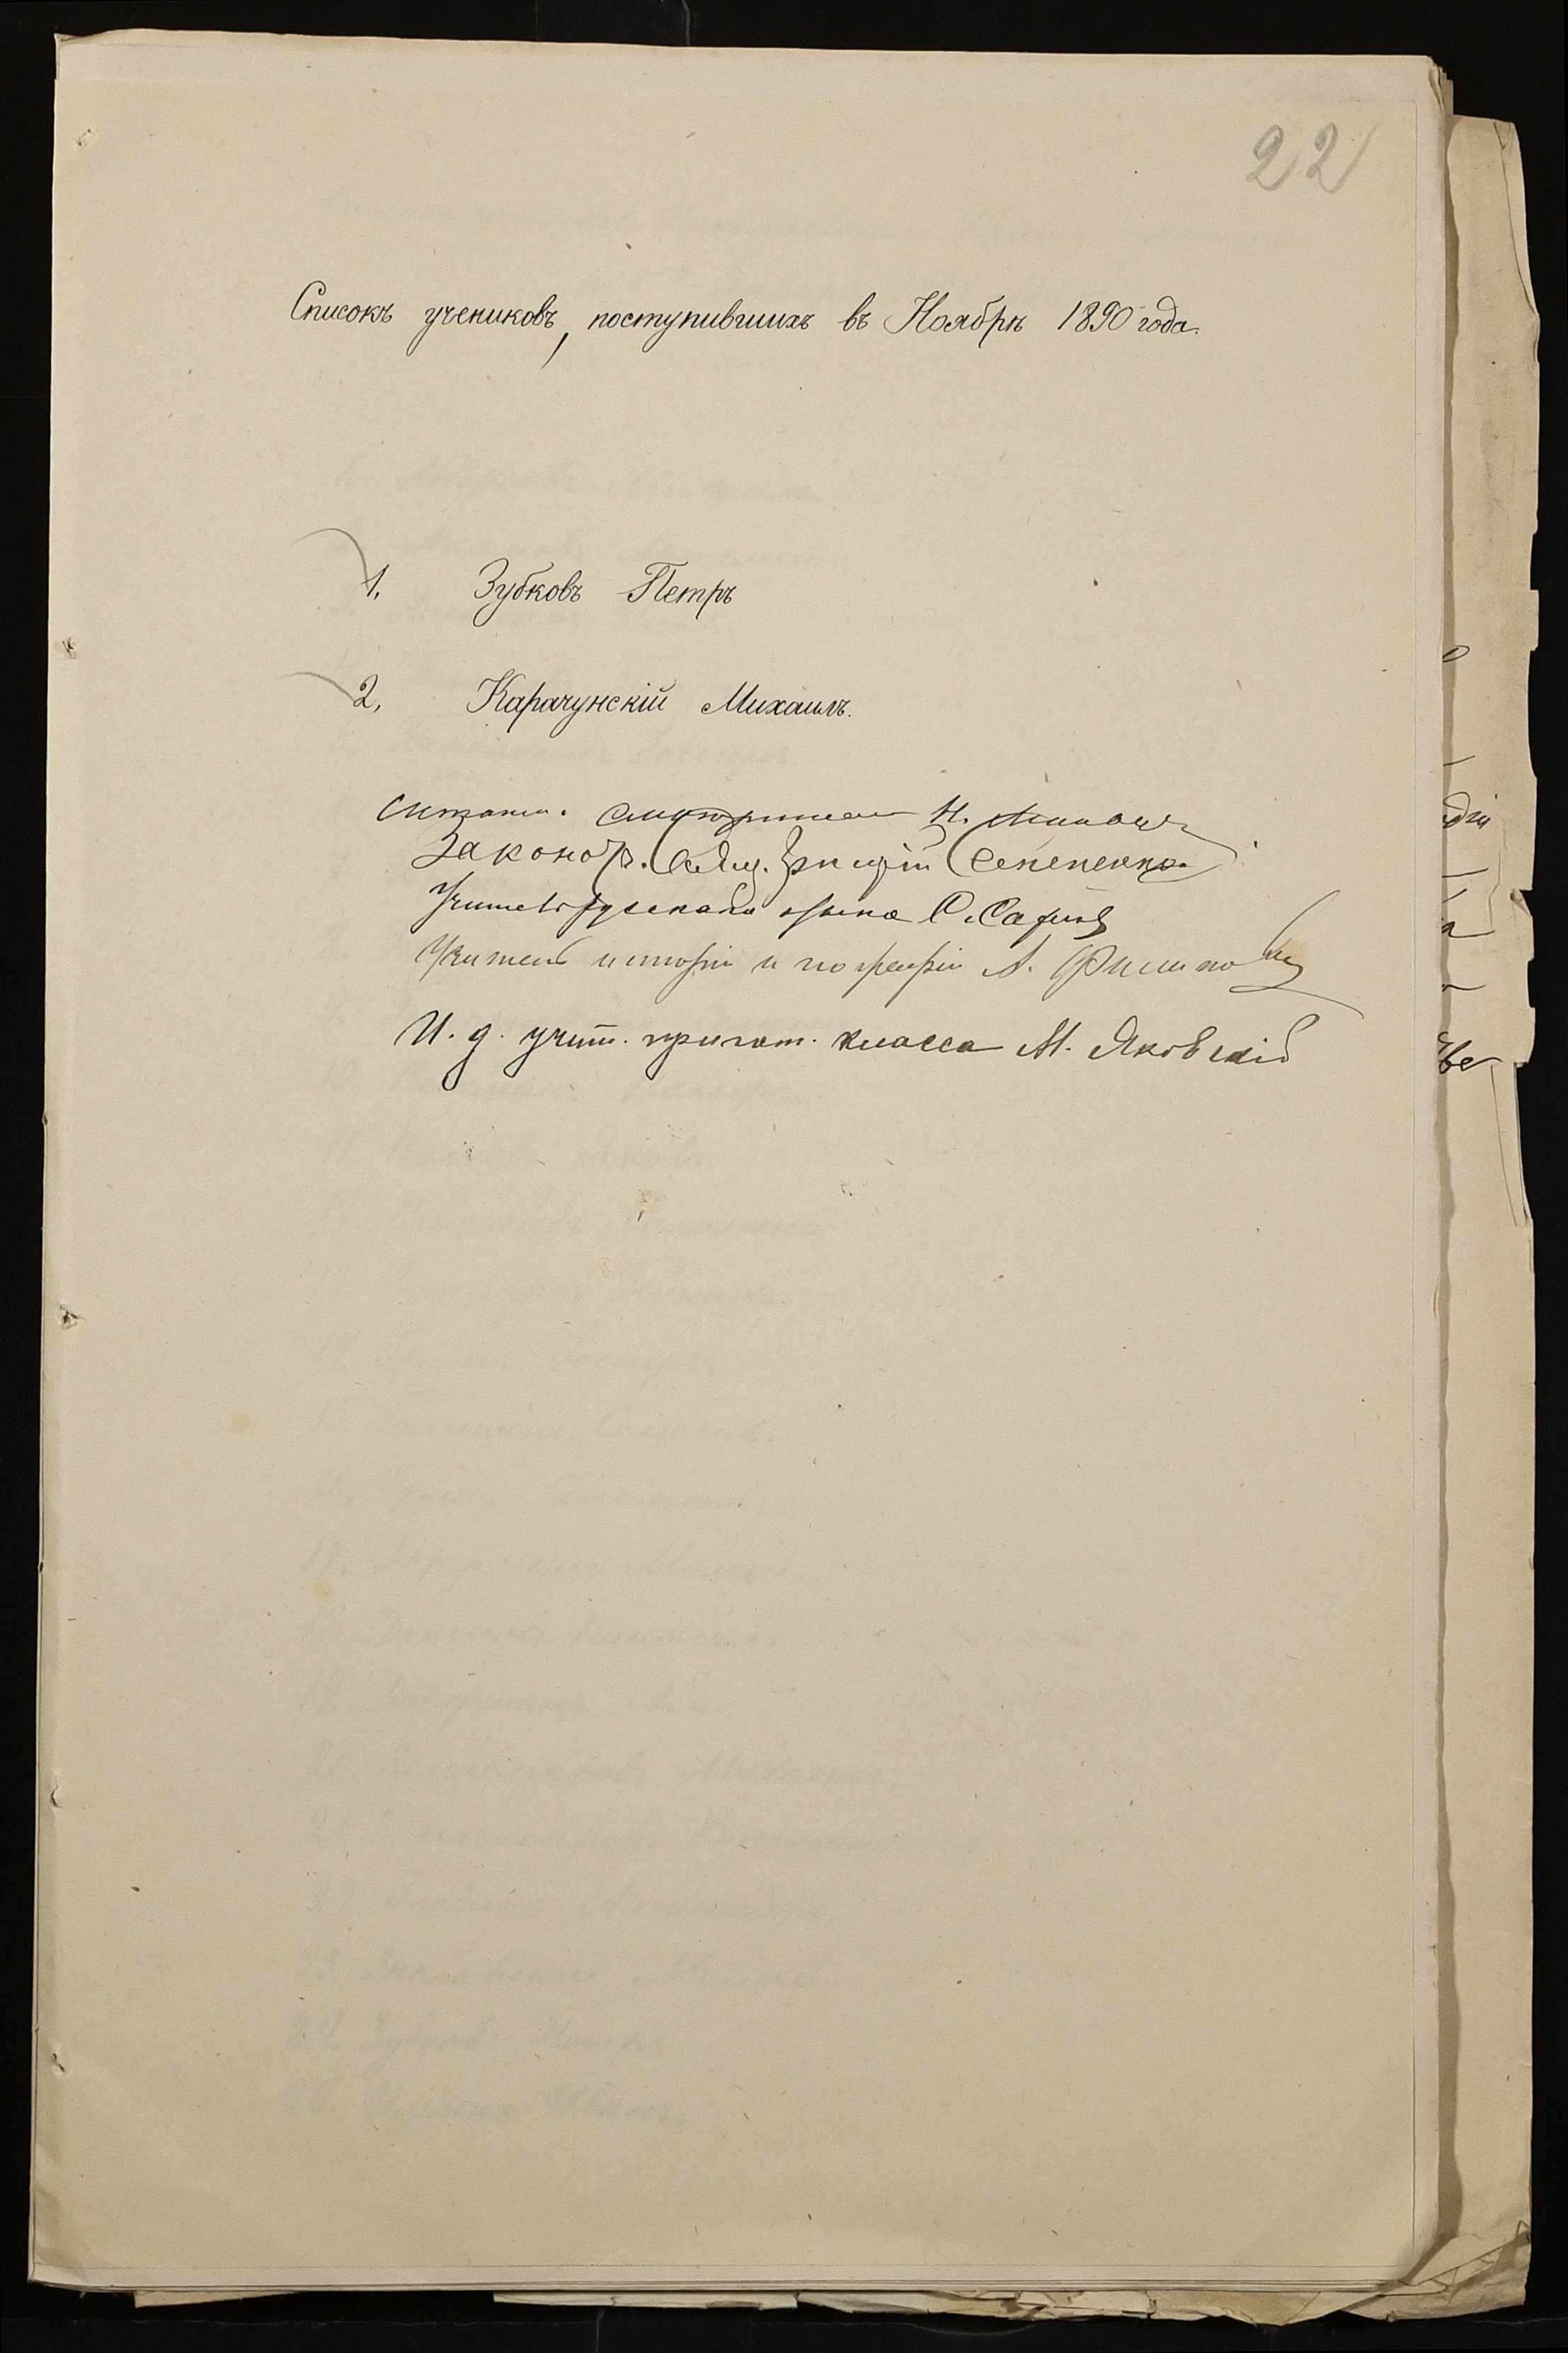 22
Списокъ учениковъ, поступившихъ въ Ноябрѣ 1890 года.
1. Зубковъ Петръ
2. Карачунскій Михаилъ.
Штатн. смотритель Н.
Законоуч. Свящ. Григорій
Учитель русскаго языка С.
Учитель исторіи и географіи А.
И. д. учит. пригот. класса М. Яковскій